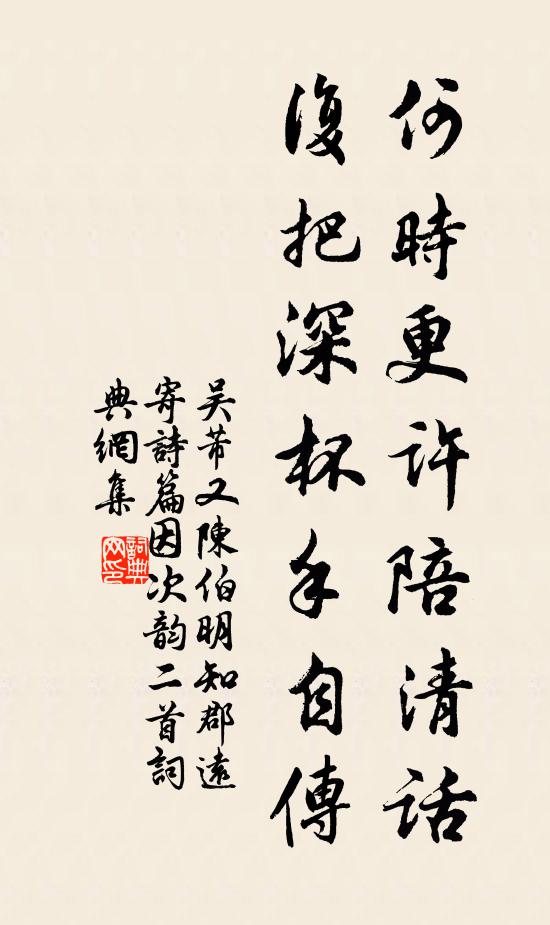 何時更許陪清話
復把深杯手自傳
吳芾又陳伯明知郡遠
寄詩篇因次韵二首詞
典網集
詞典
网印